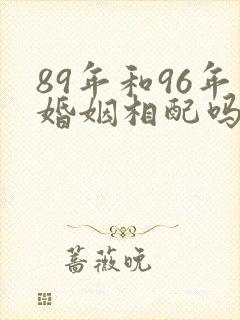 89年和96年
婚姻相配吗
蔷薇晚